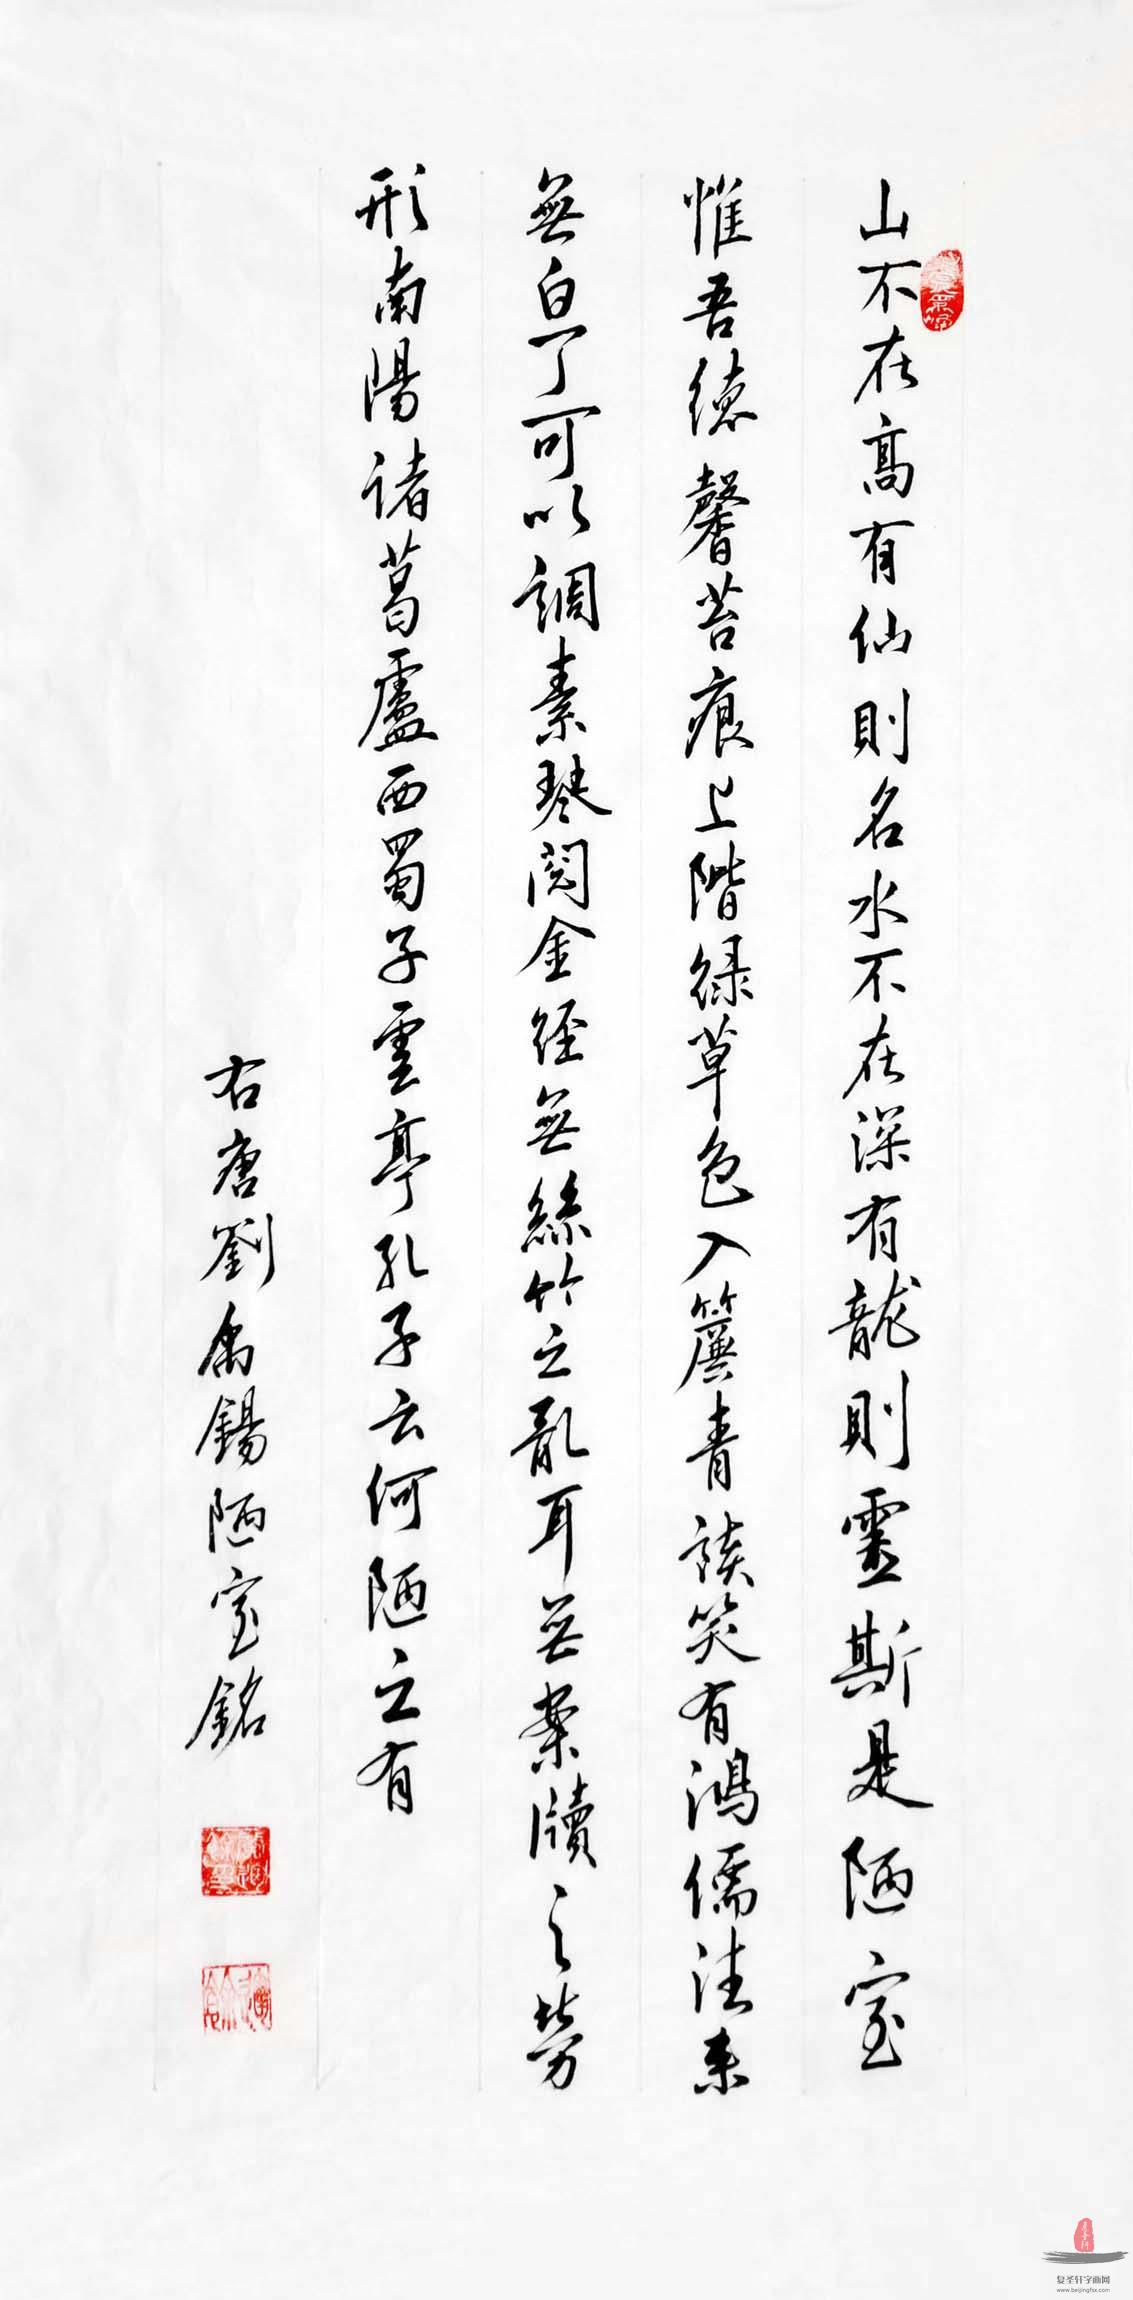 山不在高有仙則名水不在深有龍則靈斯是陋室
惟吾德馨苔痕上階緑草色入簾青談笑有鴻儒往来
無白丁可以調素琴閲金経無絲竹之亂耳無案牘之勞
形南陽諸葛廬西蜀子雲亭孔子云何陋之有
右唐劉禹錫陋室銘
复圣轩字画网
www.beijingfsx.com